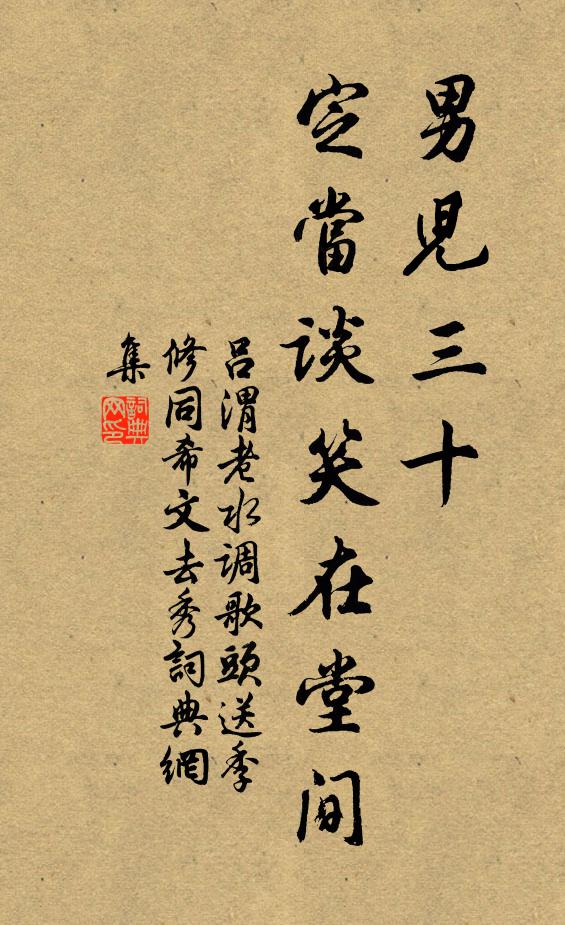 男兒三十
定當談笑在堂間
呂渭老水調歌頭送季
修同希文去秀詞典網
集
詞典
网印